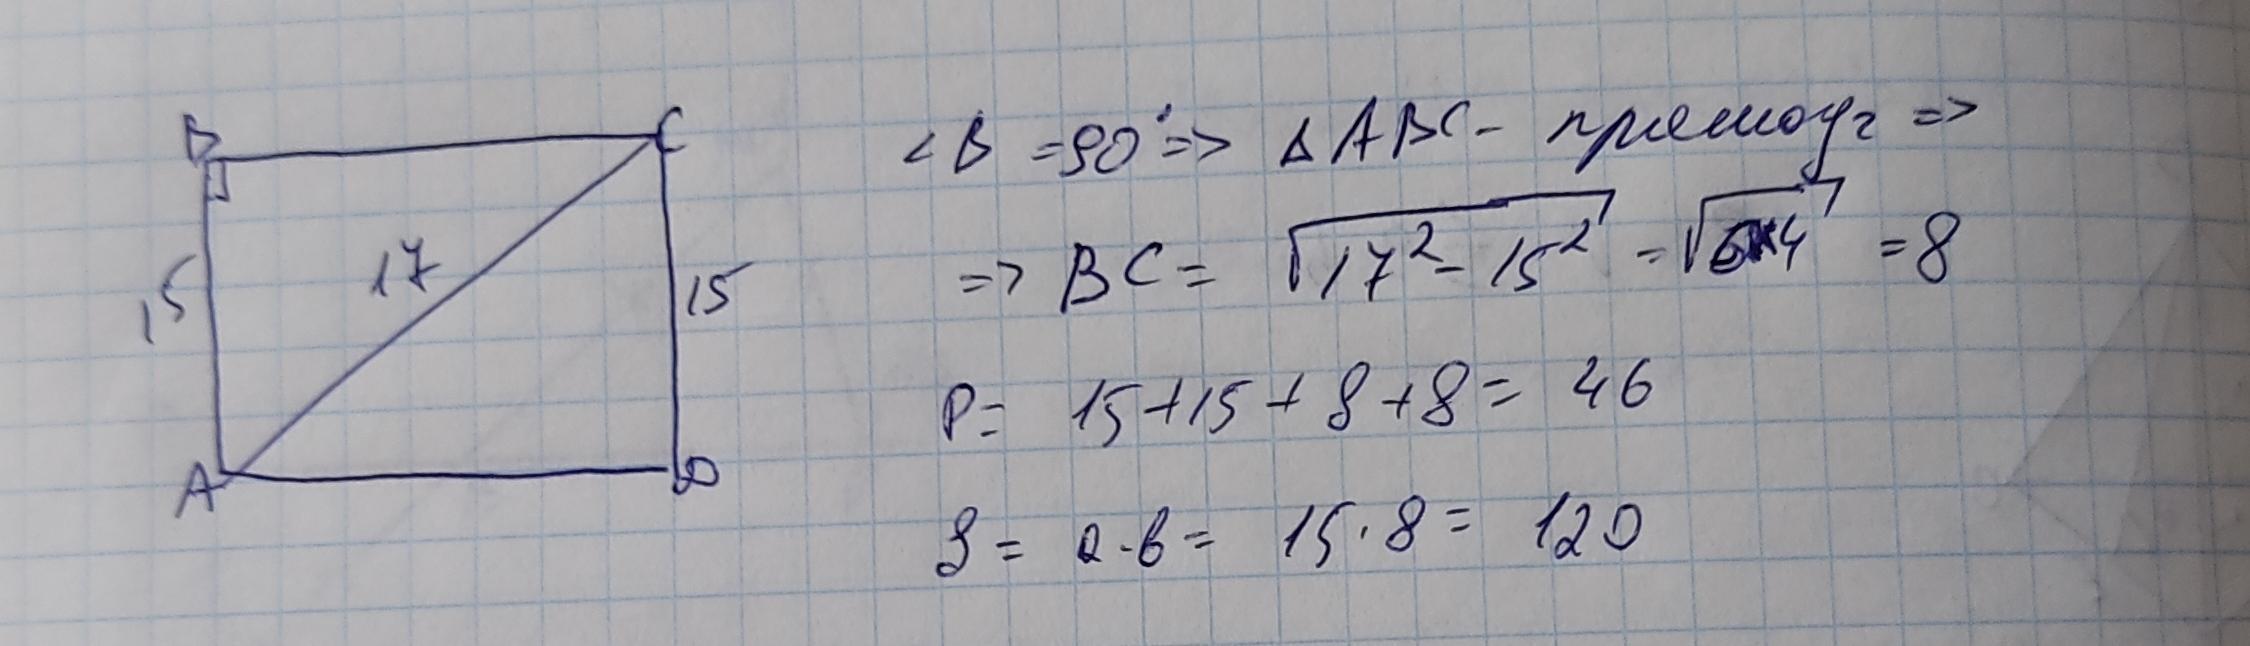 B C
15 17 15
A D
<B =90°=> ΔABC - прямоуг =>
=> BC = √17² - 15² = √64 = 8
P = 15+15+8+8 = 46
S = a·b = 15·8 = 120